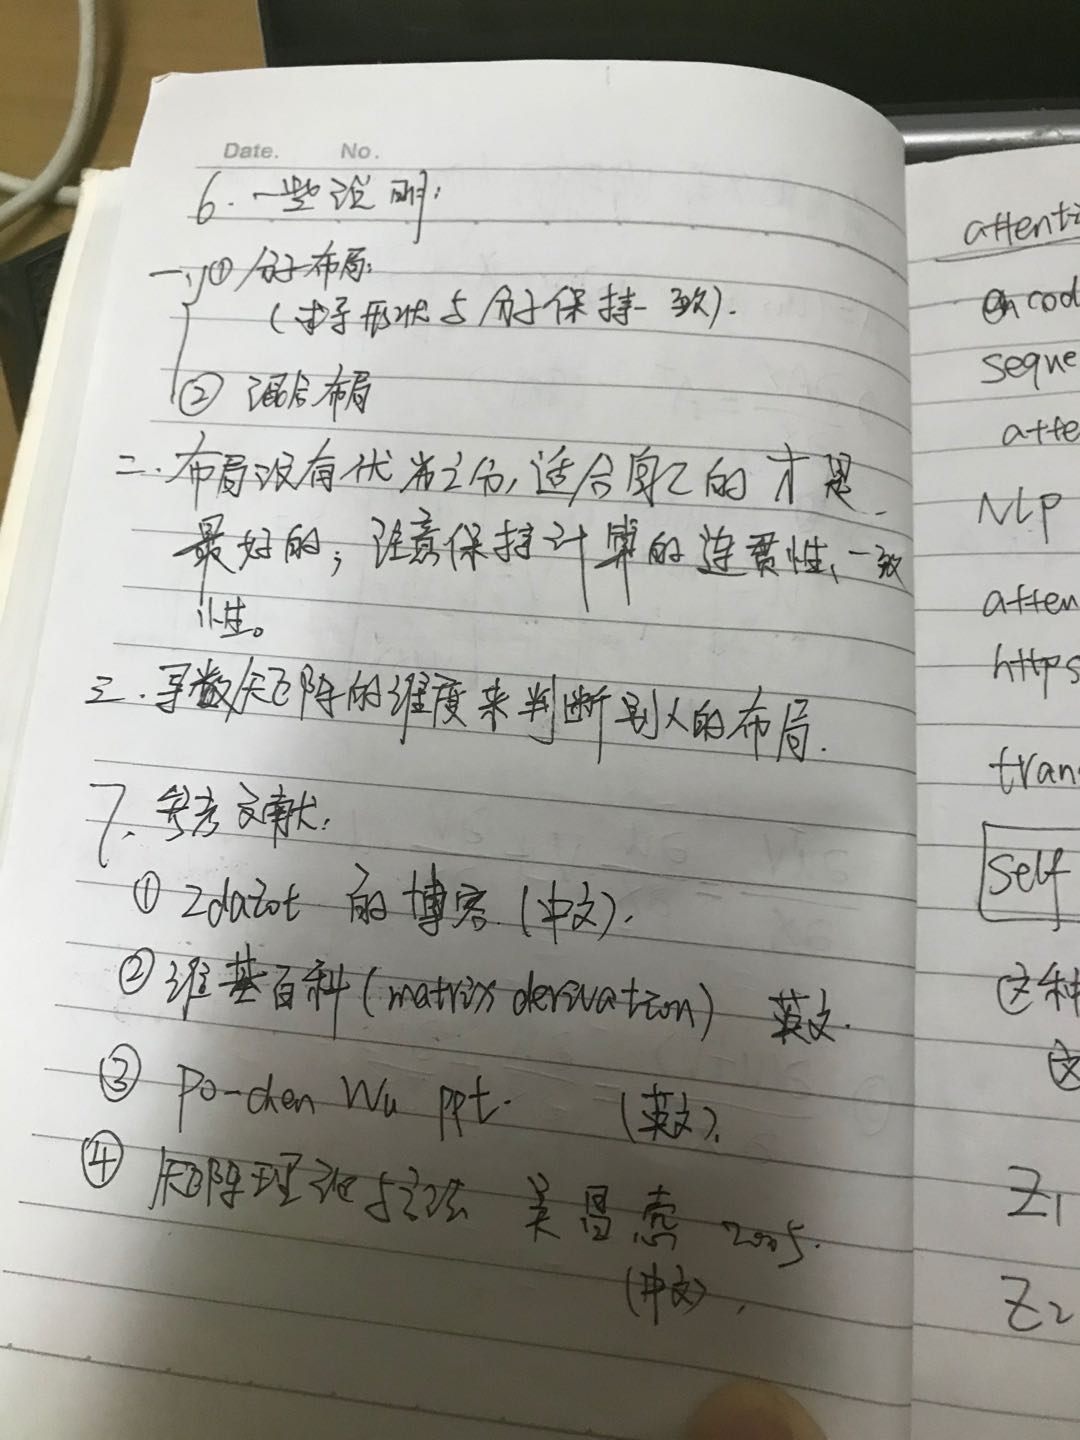 Date. No.
6. 一些说明:
一、① 分子布局:
(求导形状与分子保持一致).
② 混合布局
二. 布局没有优劣之分, 适合自己的才是
最好的; 注意保持计算的连贯性、一致
性。
三. 导数矩阵的维度来判断别人的布局.
7. 参考文献:
① zdaiot 的博客 (中文).
② 维基百科 (matrix derivation) 英文.
③ Po-chen Wu ppt. (英文).
④ 矩阵理论与方法 吴昌悫 2005.
(中文).
attenti
encod
seque
atte
NLP
atten
https
tran
self
这种
这
Z1
Z2